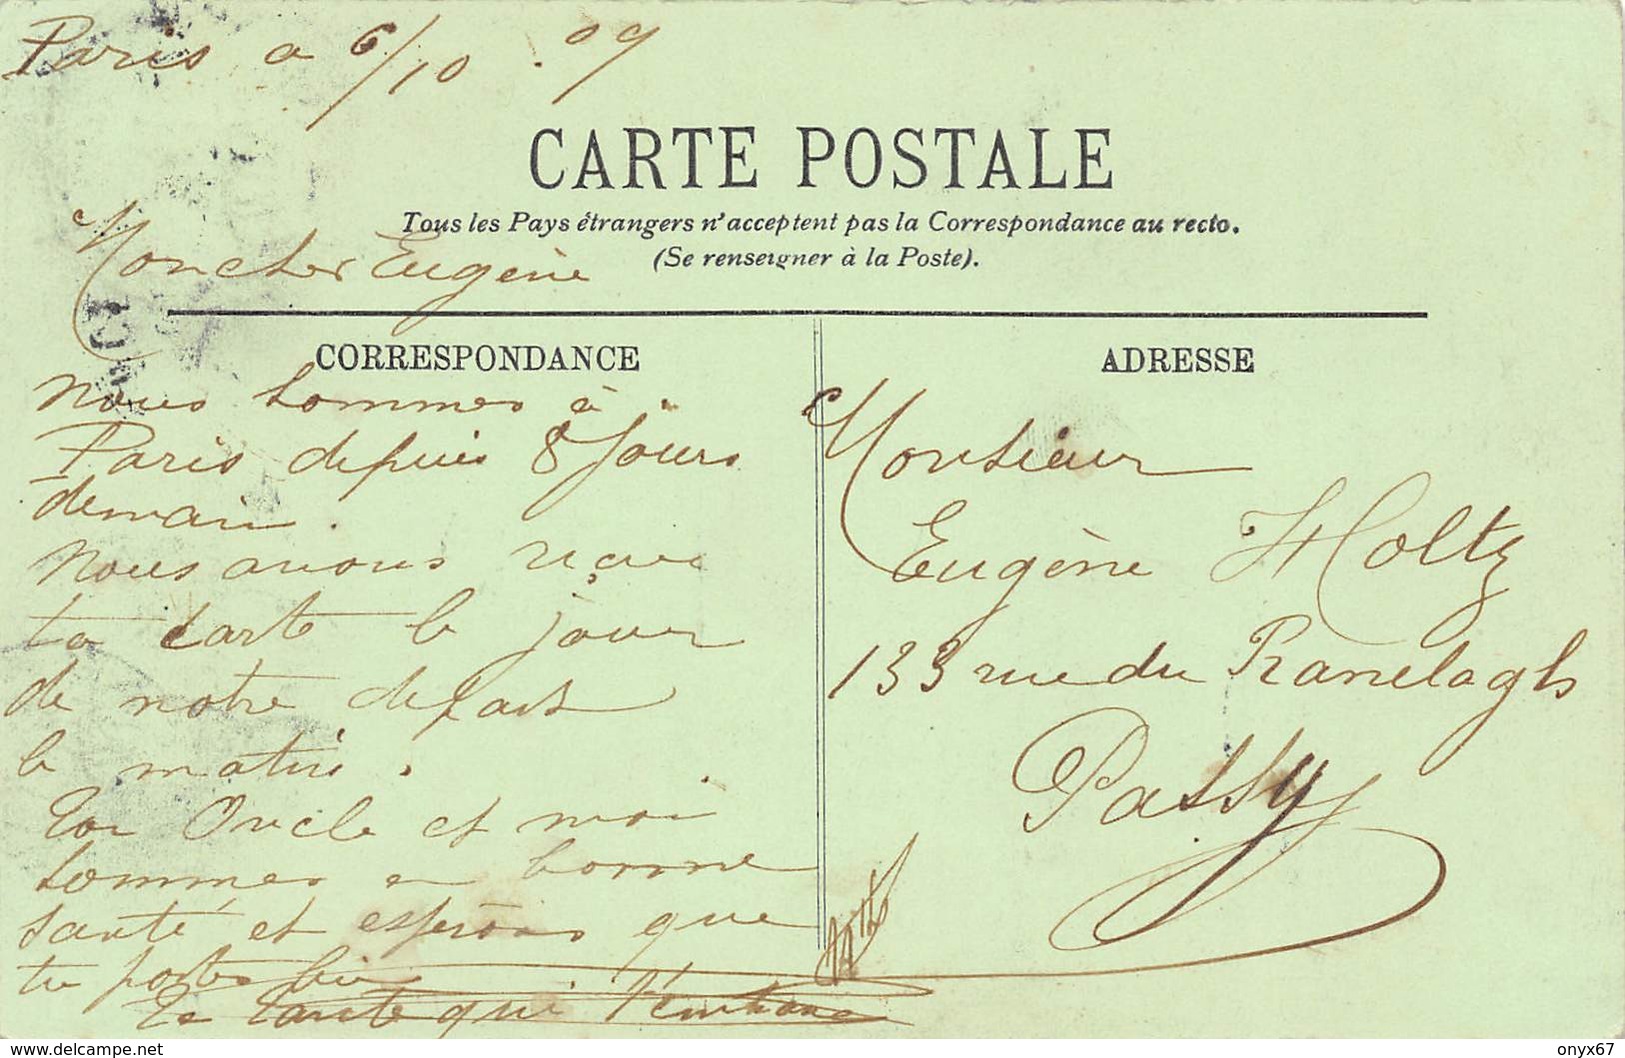 Paris a 6/10 . 09
CARTE POSTALE
Tous les Pays étrangers n'acceptent pas la Correspondance au recto.
(Se renseigner à la Poste).
Moncher Eugène
CORRESPONDANCE
nous sommes à
Paris depuis 8 jours
demain.
Nous avons reçu
ta carte le jour
de notre depart
le matin.
Ton Oncle et moi
sommes en bonne
santé et espérons que
tu portes bien
Ta Tante qui t'embrasse
ADRESSE
Monsieur
Eugène Holtz
133 rue du Ranelagh
Passy
www.delcampe.net
onyx67